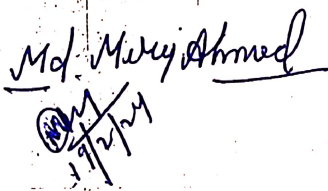 Md. Meraj Ahmed
19/2/24